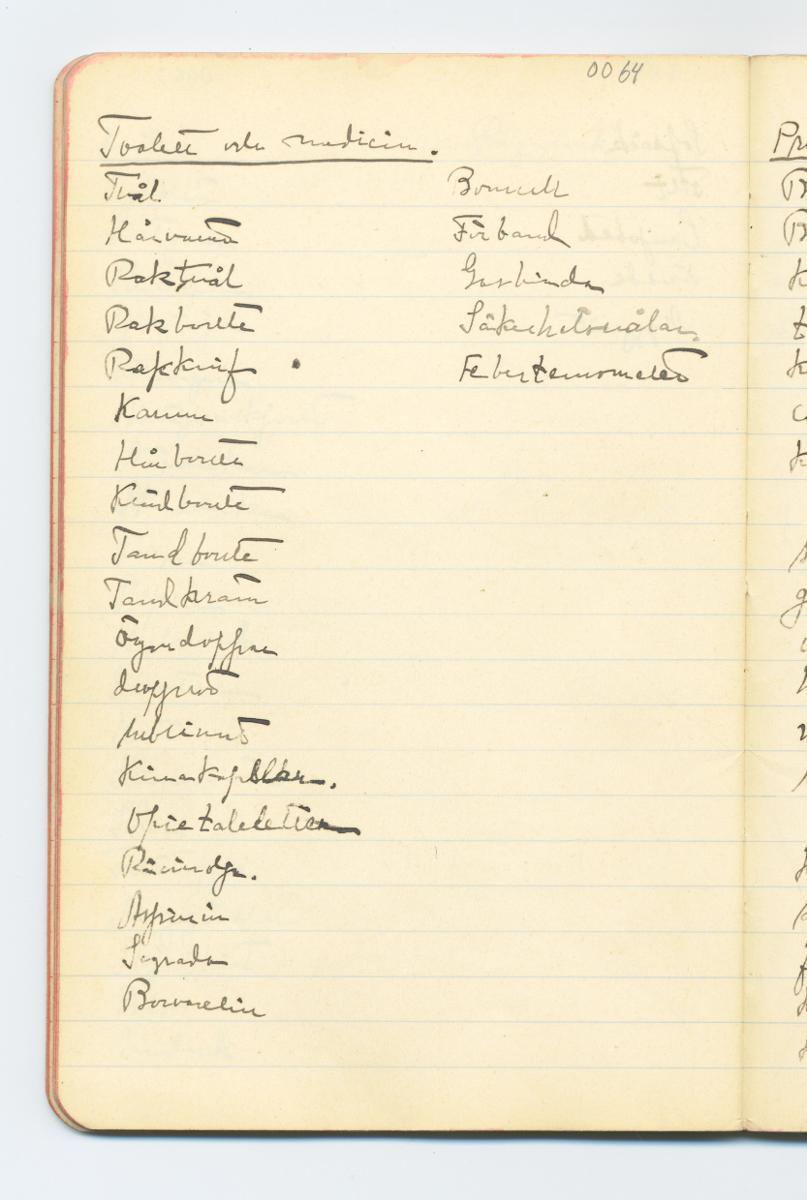 0064
Toalett och medicin.
Tvål
Hårvatten
Raktvål
Rakborste
Rakknif
Kam
Hårborste
Klädborste
Tandborste
Tandkräm
Ögondroppar
Kininkapslar.
Opietabletter
Ricinolja.
Aspirin
Sagrada
Borvaselin
Bomull
Förband
Gasbindor
Säkerhetsnålar.
Febertermometer